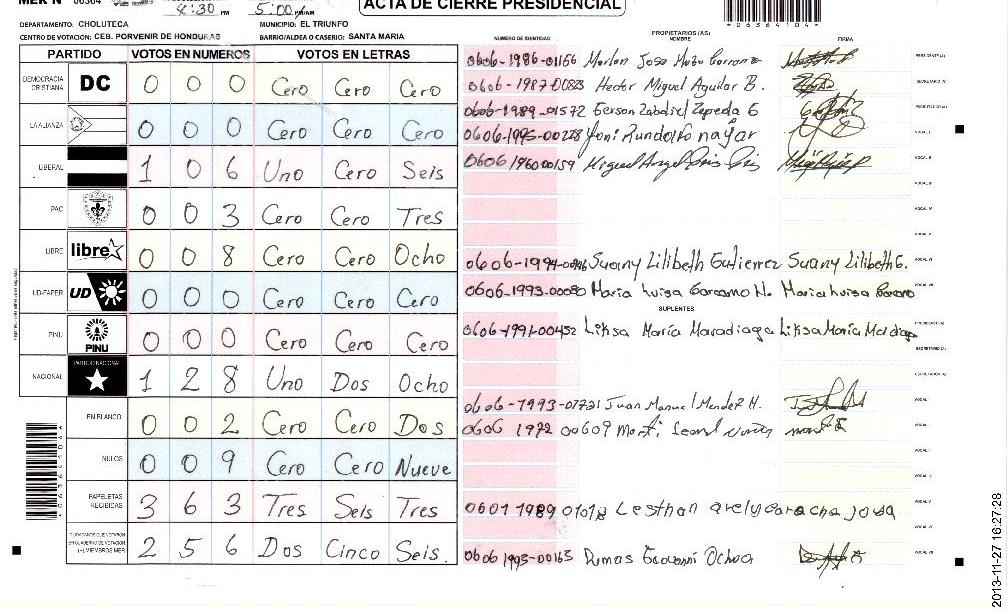 MER N° 06364 4:30 PM 5:00 PM/AM ACTA DE CIERRE PRESIDENCIAL
DEPARTAMENTO: CHOLUTECA MUNICIPIO: EL TRIUNFO
CENTRO DE VOTACION: CEB. PORVENIR DE HONDURAS BARRIO/ALDEA O CASERIO: SANTA MARIA
*06364104*
PROPIETARIOS (AS)
NUMERO DE IDENTIDAD NOMBRE FIRMA
PARTIDO VOTOS EN NUMEROS VOTOS EN LETRAS
DEMOCRACIA CRISTIANA DC 0 0 0 Cero Cero Cero
LA ALIANZA 0 0 0 Cero Cero Cero
LIBERAL 1 0 6 Uno Cero Seis
PAC 0 0 3 Cero Cero Tres
LIBRE libre 0 0 8 Cero Cero Ocho
UD-FAPER UD 0 0 0 Cero Cero Cero
PINU PINU 0 0 0 Cero Cero Cero
NACIONAL PARTIDO NACIONAL 1 2 8 Uno Dos Ocho
EN BLANCO 0 0 2 Cero Cero Dos
NULOS 0 0 9 Cero Cero Nueve
PAPELETAS RECIBIDAS 3 6 3 Tres Seis Tres
CIUDADANOS QUE VOTARON EN CUADERNO DE VOTACION (+) MIEMBROS MER 2 5 6 Dos Cinco Seis.
0606-1986-01166 Marlon Jose PRESIDENTE(A)
0606-1987-00823 Hector Miguel Aguilar B. SECRETARIO(A)
0606-1989-01572 Gerson Zabdiel Zepeda G ESCRUTADOR(A)
0606-1993-00228 Yoni Rundolfo nayar VOCAL I
0606 196000159 Miguel Angel VOCAL II
VOCAL III
VOCAL IV
VOCAL V
0606-1994- Suany Lilibeth Gutierrez Suany Lilibeth G. VOCAL VI
0606-1993-00080 Maria Luisa Carcamo H. Maria Luisa Carcamo VOCAL VII
SUPLENTES
0606-1991-00452 Liksa María Maradiaga Liksa María PRESIDENTE(A)
SECRETARIO(A)
ESCRUTADOR(A)
0606-1993-01721 Juan Manuel Mendez H. VOCAL I
0606 1972 00609 VOCAL II
0601 1989 01018 Lesthan arely VOCAL V
VOCAL VI
0606 1993-00163 Dumas Geovanni Ochoa VOCAL VII
2013-11-27 16:27:28